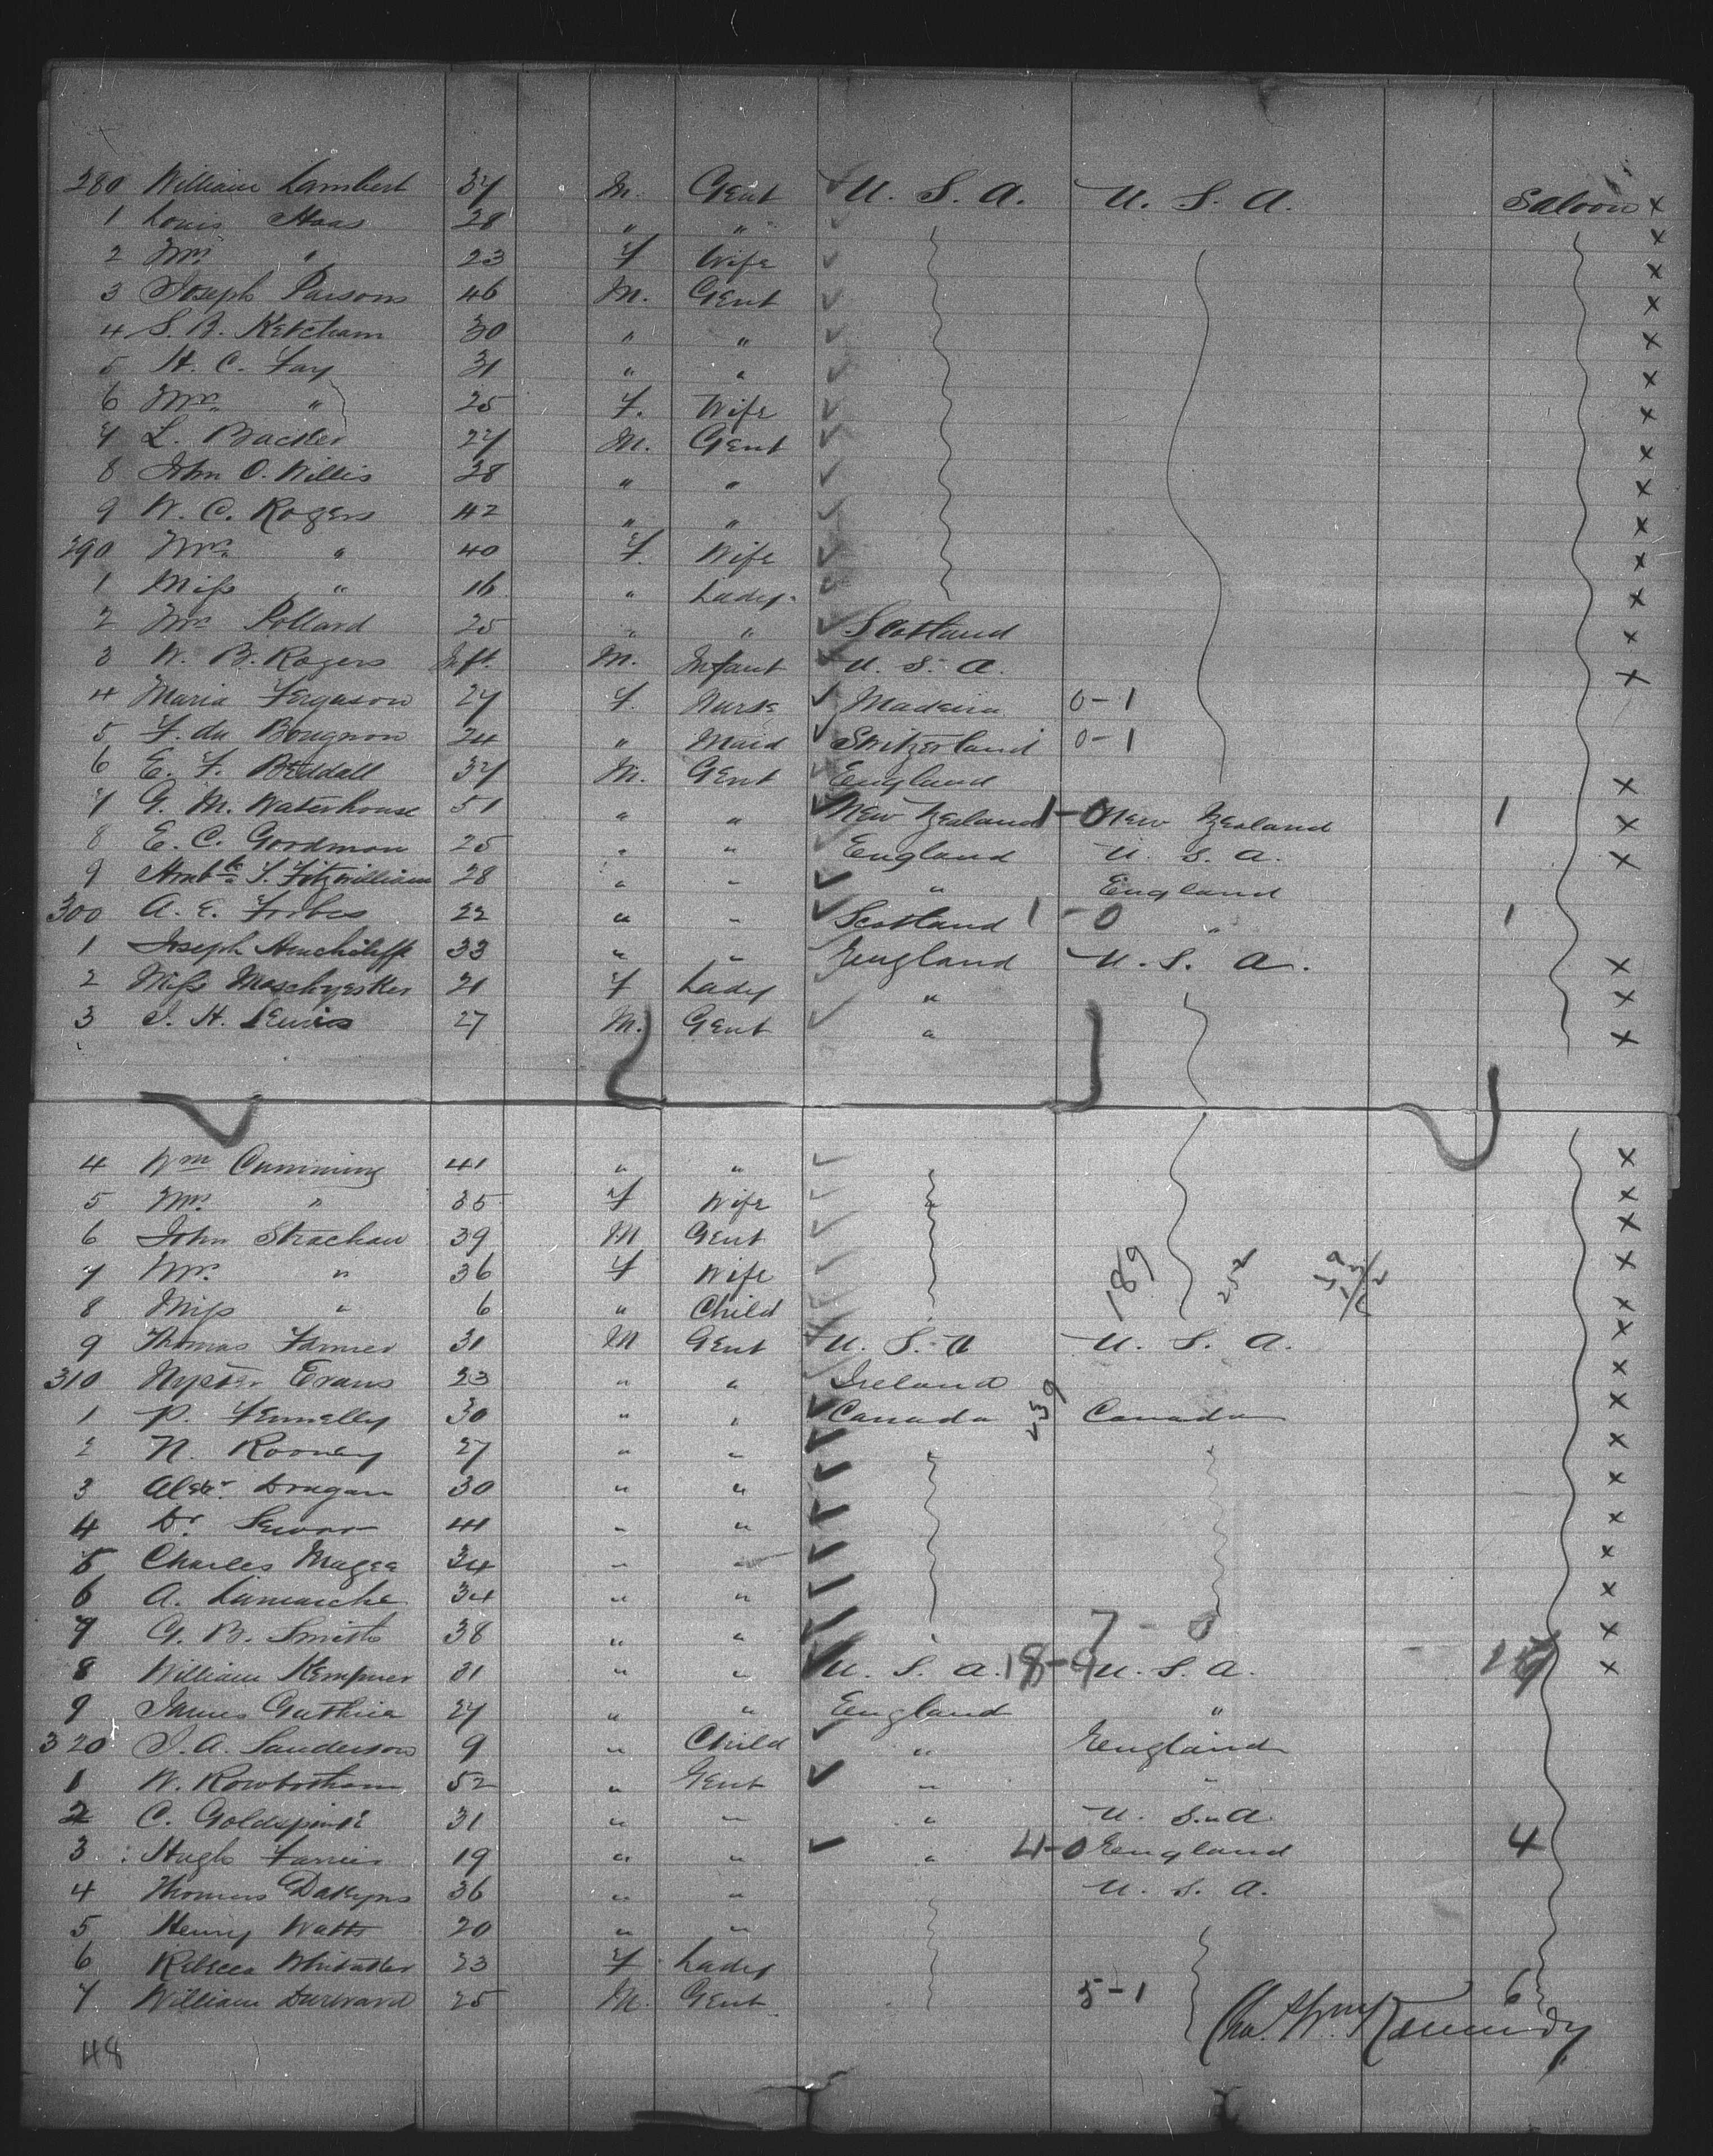 280 William Lambert 37 M. Gent U. S. A. U. S. A. Saloon x
1 Louis Haas 28 " " x
2 Mrs " 23 F Wife x
3 Joseph Parsons 46 M. Gent x
4 S. B. Ketcham 30 " " x
5 H. C. Fay 31 " " x
6 Mrs. " 25 F. Wife x
7 L. 27 M. Gent x
8 John O. Willis 38 " " x
9 W. C. Rogers 42 " " x
290 Mrs. " 40 F. Wife x
1 Miss " 16 " Lady x
2 Mrs Pollard 25 " " Scotland x
3 W. B. Rogers Inft. M. Infant U. S. A. x
4 Maria Ferguson 27 F. Nurse Madeira 0-1
5 F. du Bougnon 24 " Maid Switzerland 0-1
6 E. F. Beddall 37 M. Gent England x
7 G. M. Waterhouse 51 " " New Zealand 1-0 New Zealand 1 x
8 E. C. Goodman 25 " " England U. S. A. x
9 Fitzwilliam 28 " " " England
300 A. E. Forbes 22 " " Scotland 1-0 " 1
1 Joseph Hinchcliffe 33 " " England U. S. A. x
2 Miss 21 F Lady " x
3 J. H. Lewis 27 M. Gent " x
4 Wm Cumming 41 " " x
5 Mrs. " 35 F Wife " x
6 John Strachan 39 M Gent x
7 Mrs. " 36 F Wife 189 252 x
8 Miss " 6 " Child x
9 Thomas 31 M Gent U. S. A U. S. A. x
310 Evans 23 " " Ireland x
1 P. Fennelly 30 " " Canada 239 Canada x
2 N. Rooney 27 " " x
3 Alexr. 30 " " x
4 Dr. 41 " " x
5 Charles Magee 34 " " x
6 A. Lamarche 34 " " x
7 G. B. Smith 38 " " 7 - 0 x
8 William 31 " " U. S. A. 18-9 U. S. A. x
9 James Guthrie 27 " " England "
320 J. A. Sanderson 9 " Child " England
1 W. Rowbotham 52 " Gent " "
2 C. 31 " " " U. S. A
3 Hugh 19 " " " 4-0 England 4
4 Thomas Dakyns 36 " " U. S. A.
5 Henry Watts 20 " "
6 Rebecca 23 F Lady
7 William Durward 25 M. Gent 5-1 6
Kennedy
48